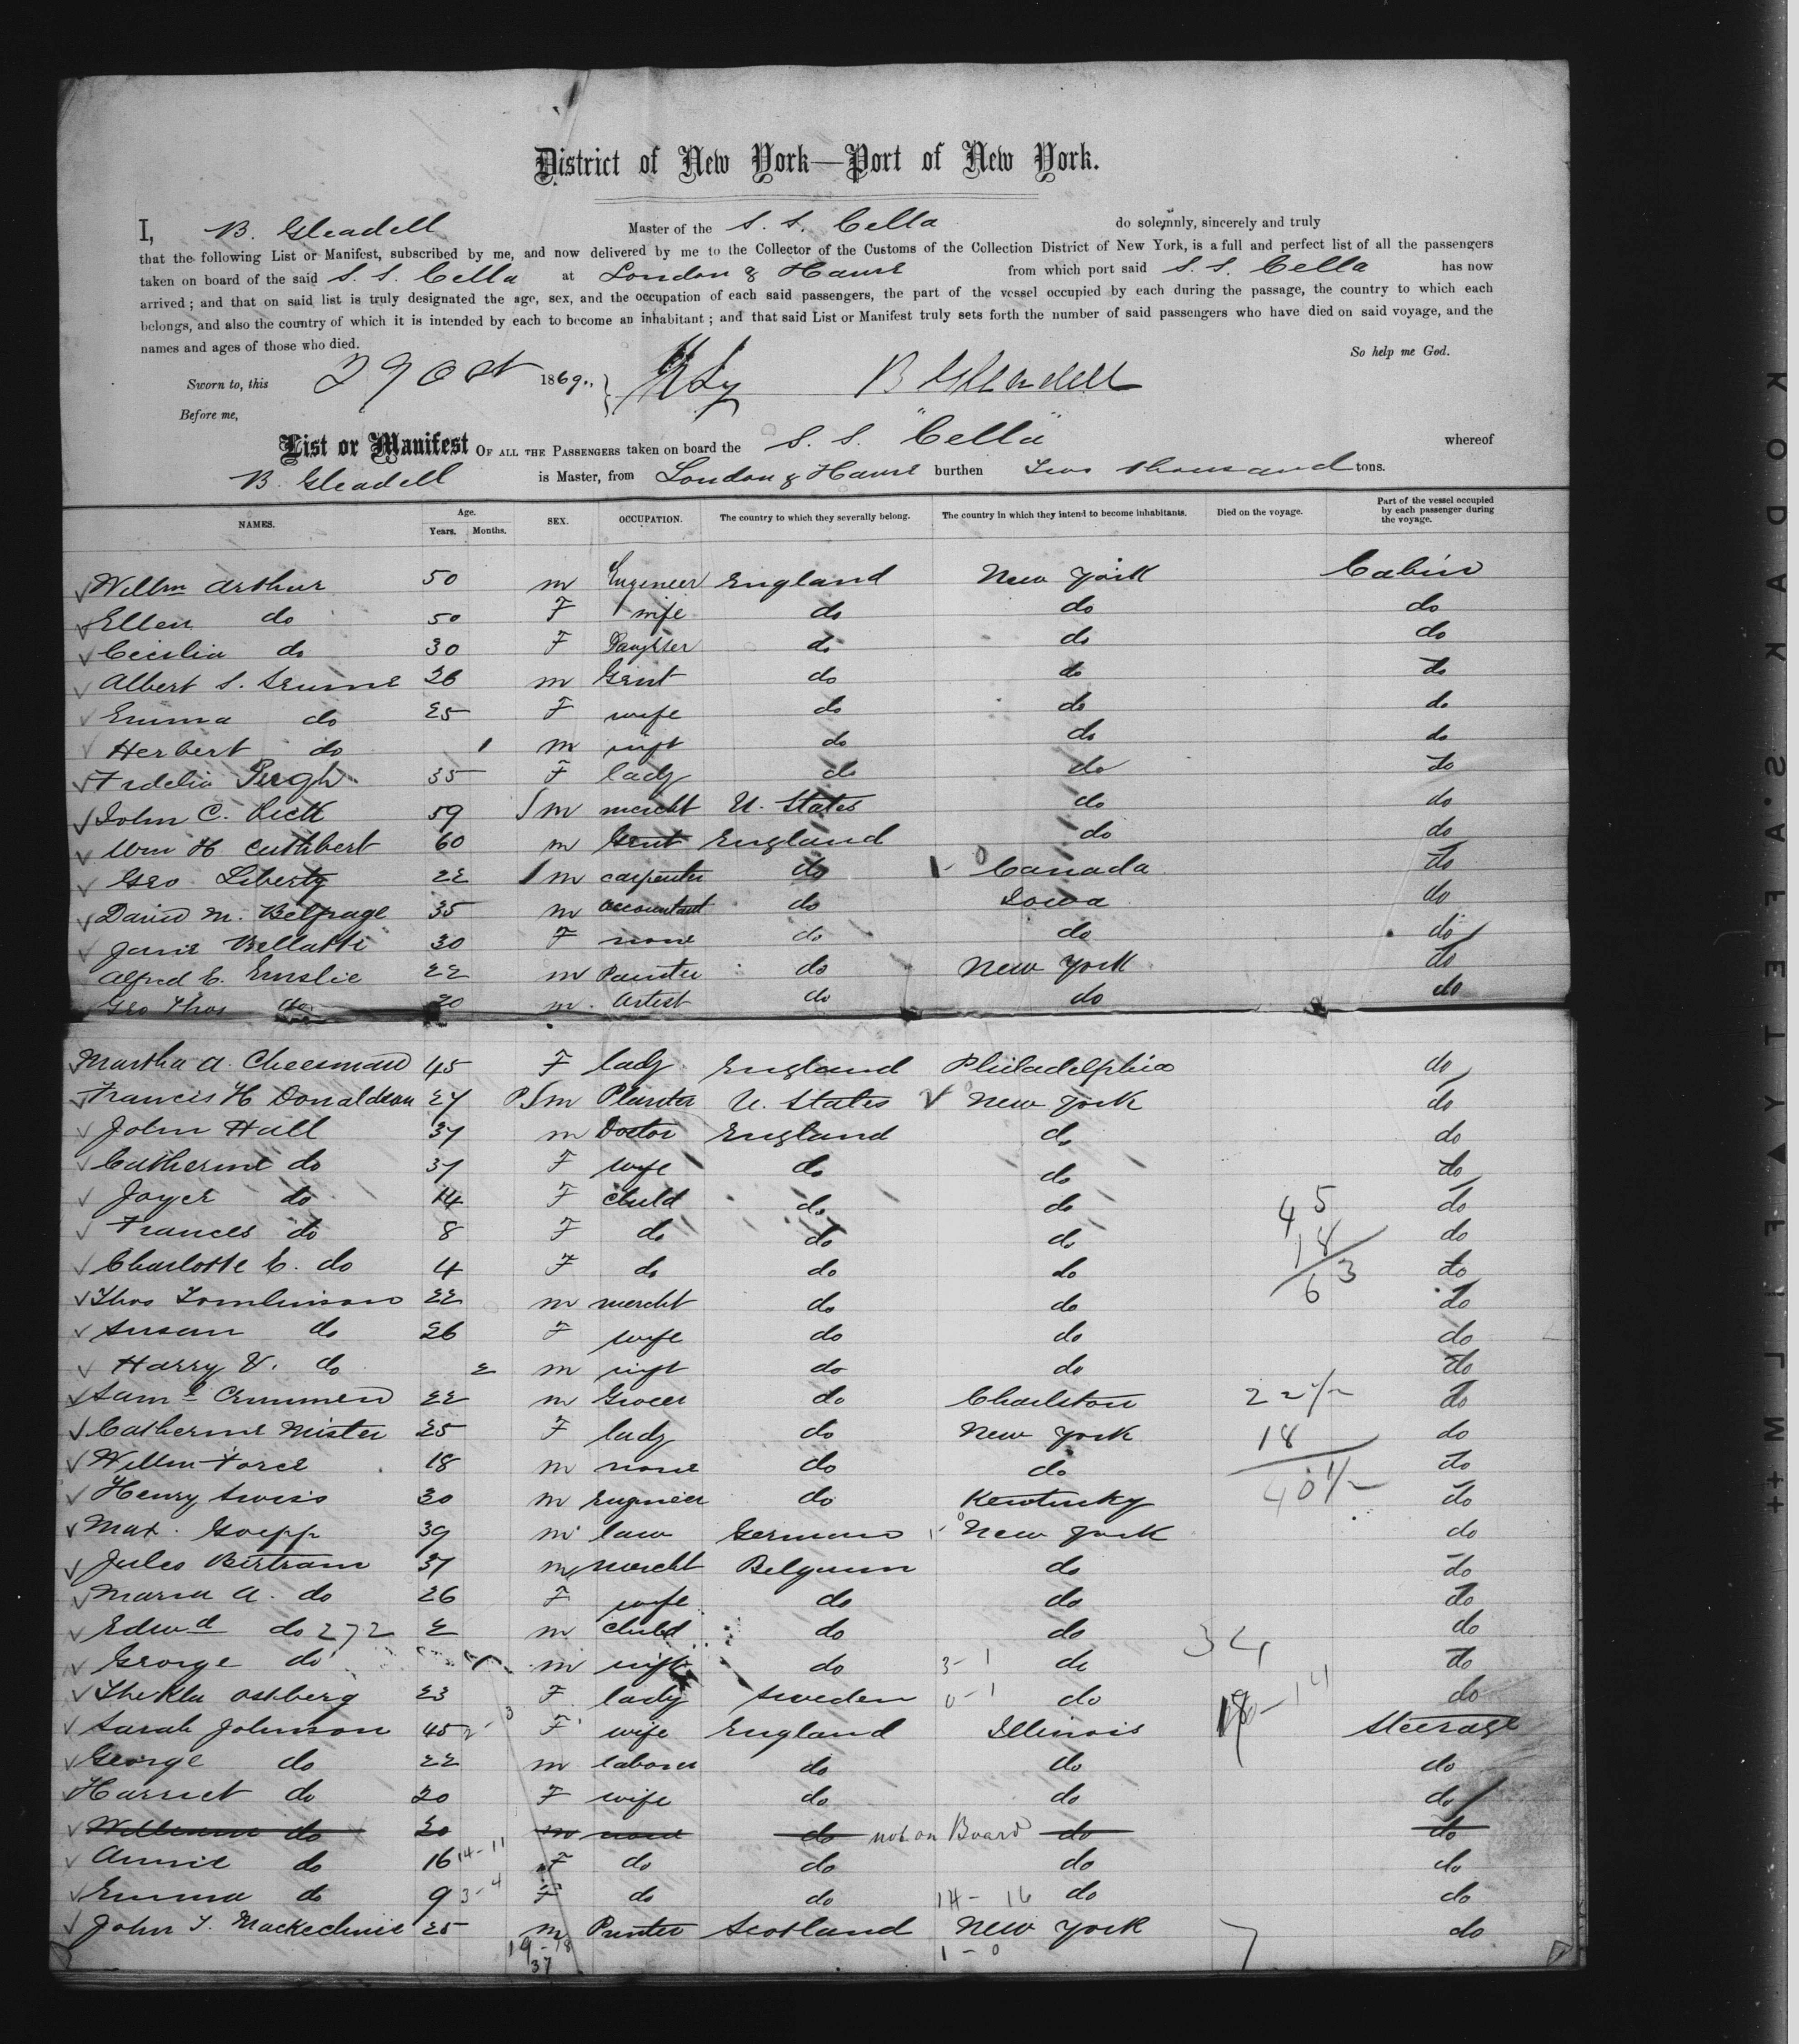 District of New York—Port of New York.
I, B. Gleadell Master of the S. S. Cella do solemnly, sincerely and truly
that the following List or Manifest, subscribed by me, and now delivered by me to the Collector of the Customs of the Collection District of New York, is a full and perfect list of all the passengers
taken on board of the said S. S. Cella at London & Havre from which port said S. S. Cella has now
arrived; and that on said list is truly designated the age, sex, and the occupation of each said passengers, the part of the vessel occupied by each during the passage, the country to which each
belongs, and also the country of which it is intended by each to become an inhabitant; and that said List or Manifest truly sets forth the number of said passengers who have died on said voyage, and the
names and ages of those who died. So help me God.
Sworn to, this 29 Oct 1869., B Gleadell
Before me,
List or Manifest OF ALL THE PASSENGERS taken on board the S. S. "Cella" whereof
B. Gleadell is Master, from London & Havre burthen Two thousand tons.
NAMES. Age. Years. Months. SEX. OCCUPATION. The country to which they severally belong. The country in which they intend to become inhabitants. Died on the voyage. Part of the vessel occupied by each passenger during the voyage.
Willm Arthur 50 m Engineer England New York Cabin
Ellen do 50 F wife do do do
Cecilia do 30 F Daughter do do do
Albert S. 26 m Gent do do do
Emma do 25 F wife do do do
Herbert do 1 m inft do do do
Fidelia Pugh 35 F lady do do do
John C. 59 m mercht U. States do do
Wm H Cuthbert 60 m Gent England do do
Geo Liberty 22 m carpenter do 1 - 0 Canada do
David M. Belfrage 35 m accountant do Iowa do
Jane 30 F none do do do
Alfred E. Emslie 22 m Painter do New York do
Geo Thos do 20 m Artist do do do
Martha A. Cheesman 45 F lady England Philadelphia do
Francis H Donaldson 27 m Planter U. States New York do
John Hall 37 m Doctor England do do
Catherine do 37 F wife do do do
Joyer do 14 F child do do do
Frances do 8 F do do do do
Charlotte E. do 4 F do do do do
Thos Tomlinson 22 m mercht do do do
Susan do 26 F wife do do do
Harry V. do 2 m inft do do do
Saml Crummen 22 m Grocer do Charlston do
Catherine Mister 25 F lady do New York do
Willm Force 18 m none do do do
Henry Swiss 30 m Engineer do Kentucky do
Max. Goepp 39 m law German New York do
Jules Bertram 37 m mercht Belgium do do
Maria A. do 26 F wife do do do
Edwd do 272 2 m child do do do
George do 1 m inft do 3 - 1 do do
Thekla Ostberg 23 F lady Sweden 0 - 1 do do
Sarah Johnson 45 F wife England Illinois Steerage
George do 22 m laborer do do do
Harriet do 20 F wife do do do
William do 20 m none do not on Board do do
Annie do 16 14-11 F do do do do
Emma do 9 3-4 F do do 14 - 16 do do
John T. Mackechnie 25 m Printer Scotland New York do
19-18 1 - 0
37
45
18
63
22 1/2
18
40 1/2
34
KODAK SAFETY FILM